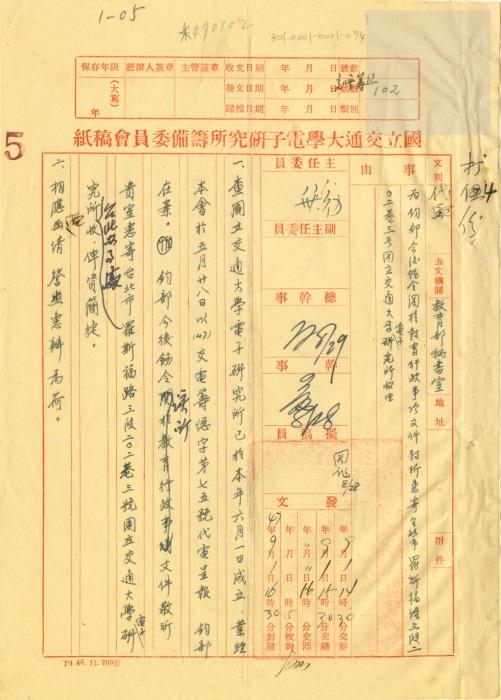 1-05
301-0001-0001-074
保存年限 經辦人簽章 主管簽章 收文日期 年 月 日 號數
(大寫) 發文日期 年 月 日 號數 102
年 歸檔日期 年 月 日 類別
國立交通大學電子研究所籌備委員會稿紙
5
打四份
文別 代電 去文機關 教育部秘書室 地址 附件
事由
為鈞部今後飭令關於教育行政事項文件敬祈惠寄台北市羅斯福路三段二
〇二巷三号國立交通大學電子研究所收由
主任委員
副主任委員
總幹事
幹事
8/28
擬稿員
8/28
發文
9月1日14時30分交辦
9月1日15時30分交繕
月 日16時5分校對
47年9月1日16時30分封發
一、查國立交通大學電子研究所已於本年六月一日成立，業經
本會於五月廿八日以(47)交電籌億字第七五號代電呈報 鈞部
在案。 鈞部今後飭令關於教育行政事項文件敬祈
貴室惠寄台北市羅斯福路三段二〇二巷三號國立交通大學電子研
究所收，俾資簡捷。
六、相應電請 詧照惠辦為荷。
T4 46. 11. 700張